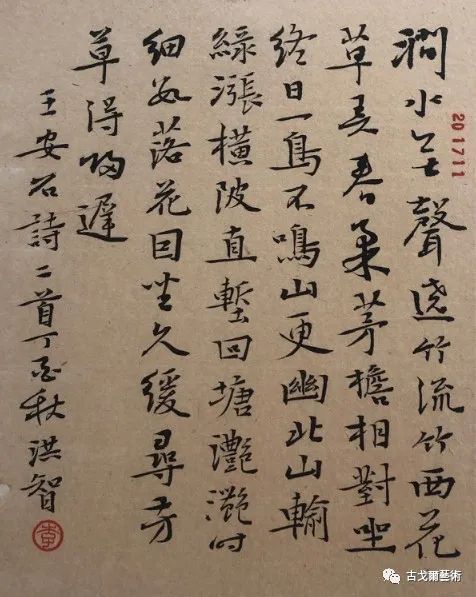 201711
澗水無聲遶竹流竹西花
草弄春柔茅檐相對坐
終日一鳥不鳴山更幽北山輸
綠漲橫陂直塹回塘灩灩時
細數落花因坐久緩尋芳
草得歸遲
王安石詩二首丁酉秋洪智
古戈爾藝術